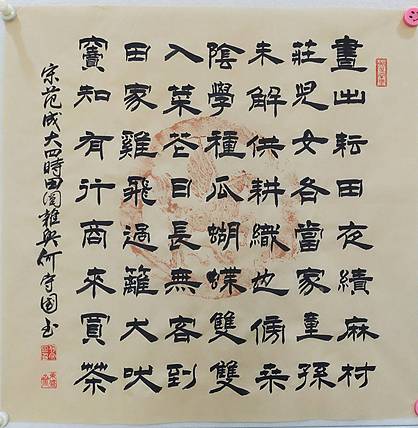 晝出耘田夜績麻村
莊兒女各當家童孫
未解供耕織也傍桑
陰學種瓜蝴蝶雙雙
入菜花日長無客到
田家雞飛過籬犬吠
竇知有行商來買茶
宋范成大四時田園雜興何守国书